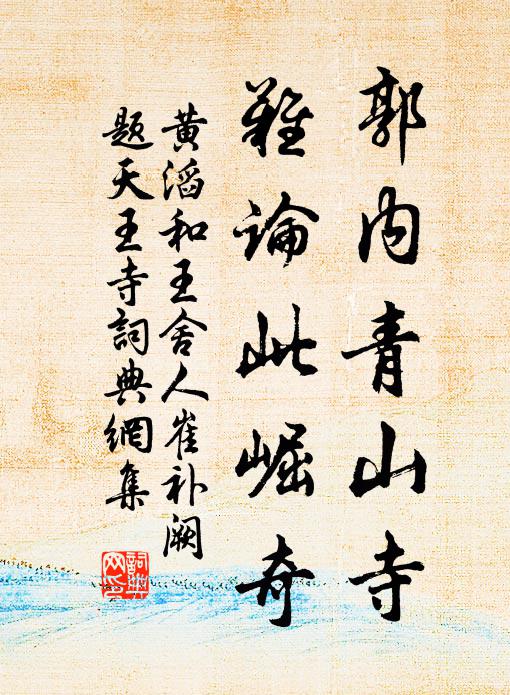 郭内青山寺
難論此崛奇
黄滔和王舍人崔补阙
題天王寺詞典網集